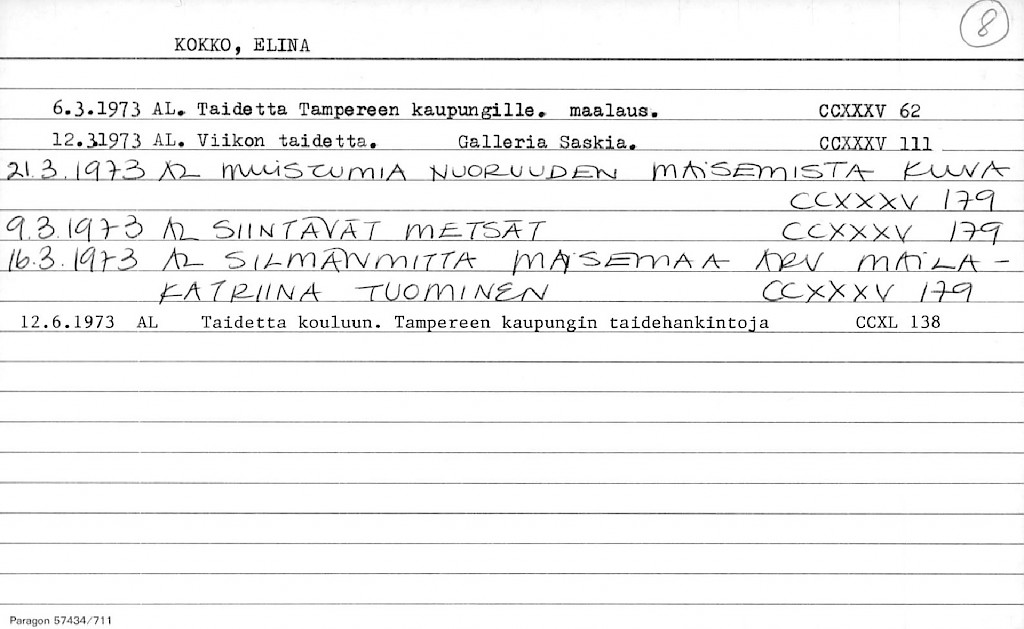 8
KOKKO, ELINA
6.3.1973 AL. Taidetta Tampereen kaupungille. maalaus. CCXXXV 62
12.3.1973 AL. Viikon taidetta. Galleria Saskia. CCXXXV 111
21.3.1973 AL MUISTUMIA NUORUUDEN MAISEMISTA KUVA
CCXXXV 179
9.3.1973 AL SIINTÄVÄT METSÄT CCXXXV 179
16.3.1973 AL SILMÄNMITTA MAISEMAA ARV MAILA-
KATRIINA TUOMINEN CCXXXV 179
12.6.1973 AL Taidetta kouluun. Tampereen kaupungin taidehankintoja CCXL 138
Paragon 57434/711